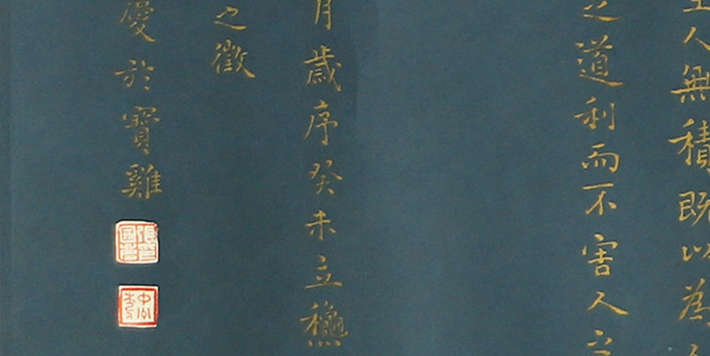 人無積既以為
道利而不害人之
月歲序癸未立穐
之徵
慶於寶雞